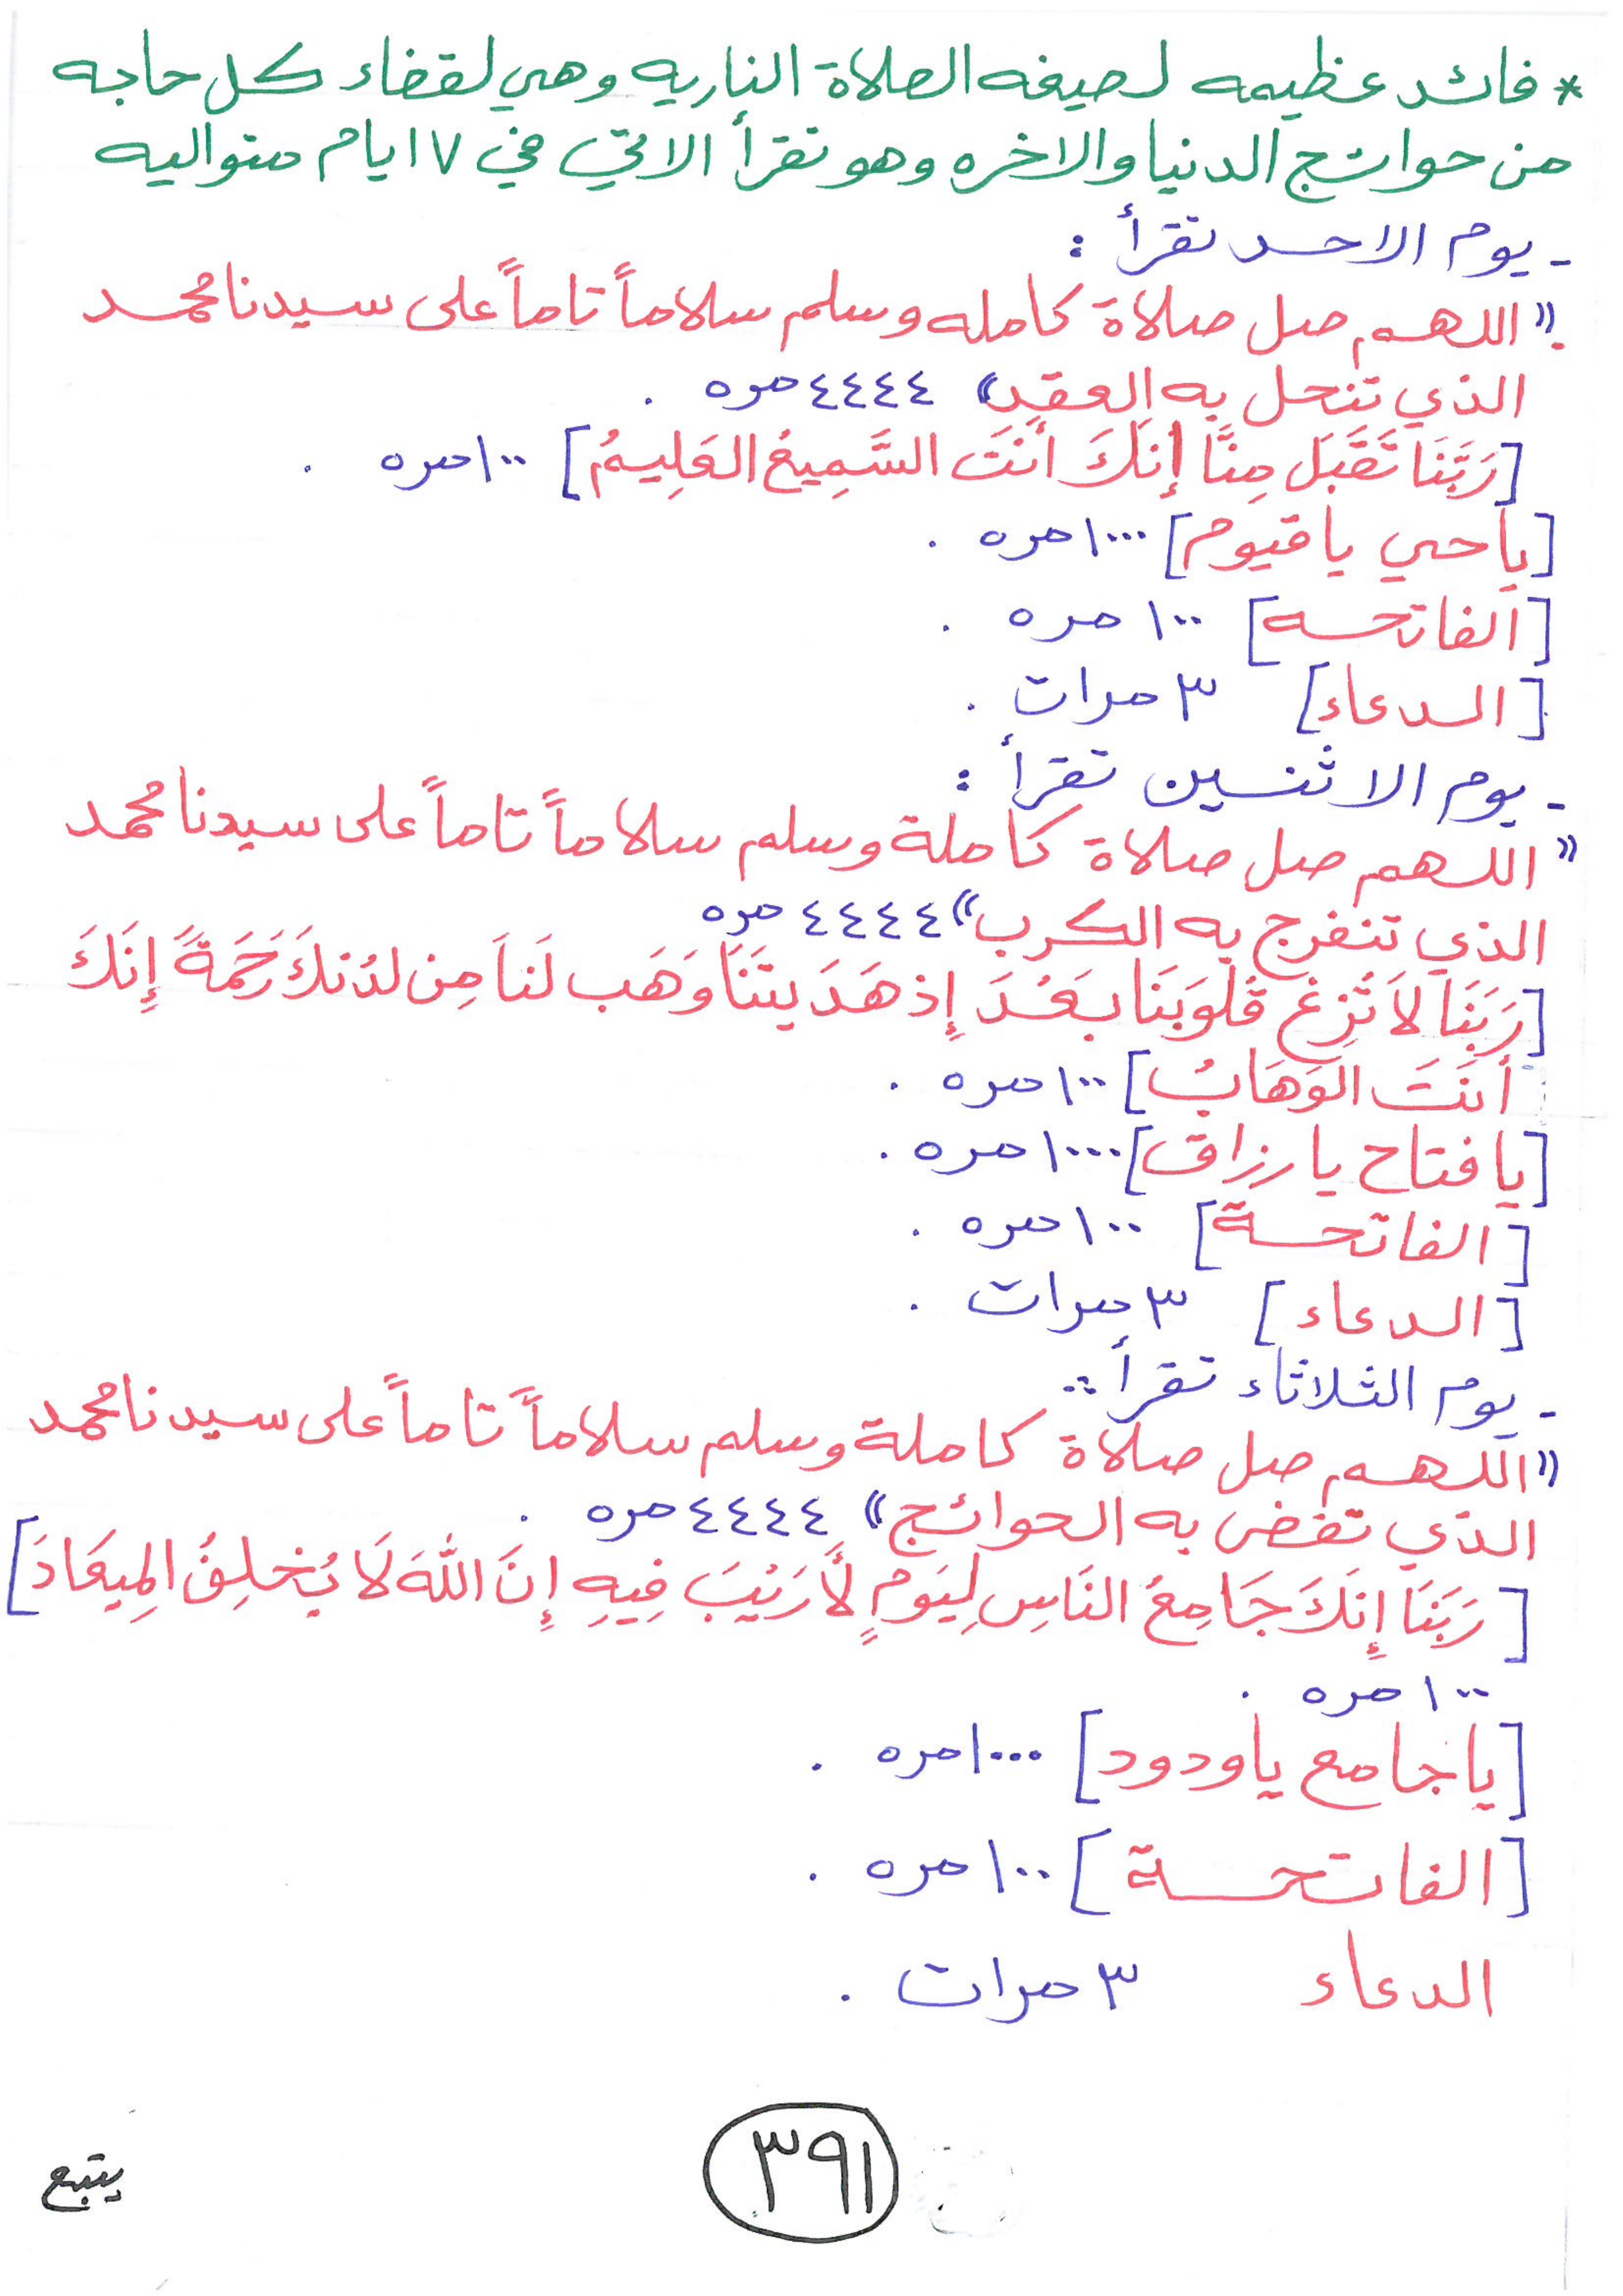 * فائد عظيمه لصيغه الصلاة الناريه وهي لقضاء كل حاجه
من حوائج الدنيا والاخره وهو تقرأ الاتي في ٧ ايام متواليه
- يوم الاحد تقرأ :
"اللهم صل صلاة كامله وسلم سلاماً تاماً على سيدنا محمد
الذي تنحل به العقد" ٤٤٤٤ مره .
[رَبَّنَا تَقَبَل مِنَّا إِنَكَ أَنتَ السَّمِيعُ العَلِيمُ] ١٠٠ مره .
[يا حي يا قيوم] ١٠٠٠ مره .
[الفاتحه] ١٠٠ مره .
[الدعاء] ٣ مرات .
- يوم الاثنين تقرأ :
"اللهم صل صلاة كاملة وسلم سلاماً تاماً على سيدنا محمد
الذي تنفرج به الكرب" ٤٤٤٤ مره
[رَبَنَا لاَ تُزِغ قُلُوبَنَا بَعْدَ إِذ هَدَيتَنَا وَهَب لَنَا مِن لدُنكَ رَحَمَةً إِنَكَ
أَنتَ الوَهَابُ] ١٠٠ مره .
[يا فتاح يا رزاق] ١٠٠٠ مره .
[الفاتحة] ١٠٠ مره .
[الدعاء] ٣ مرات .
- يوم الثلاثاء تقرأ :
"اللهم صل صلاة كاملة وسلم سلاماً تاماً على سيدنا محمد
الذي تقضى به الحوائج" ٤٤٤٤ مره .
[رَبَنَا إِنَكَ جَامِعُ النَاسِ لِيَومٍ لاَّ رَيْبَ فِيهِ إِنَ اللهَ لَا يُخلِفُ المِيعَادَ]
١٠٠ مره .
[يا جامع يا ودود] ١٠٠٠ مره .
[الفاتحة] ١٠٠ مره .
الدعاء ٣ مرات .
٣٩١
يتبع